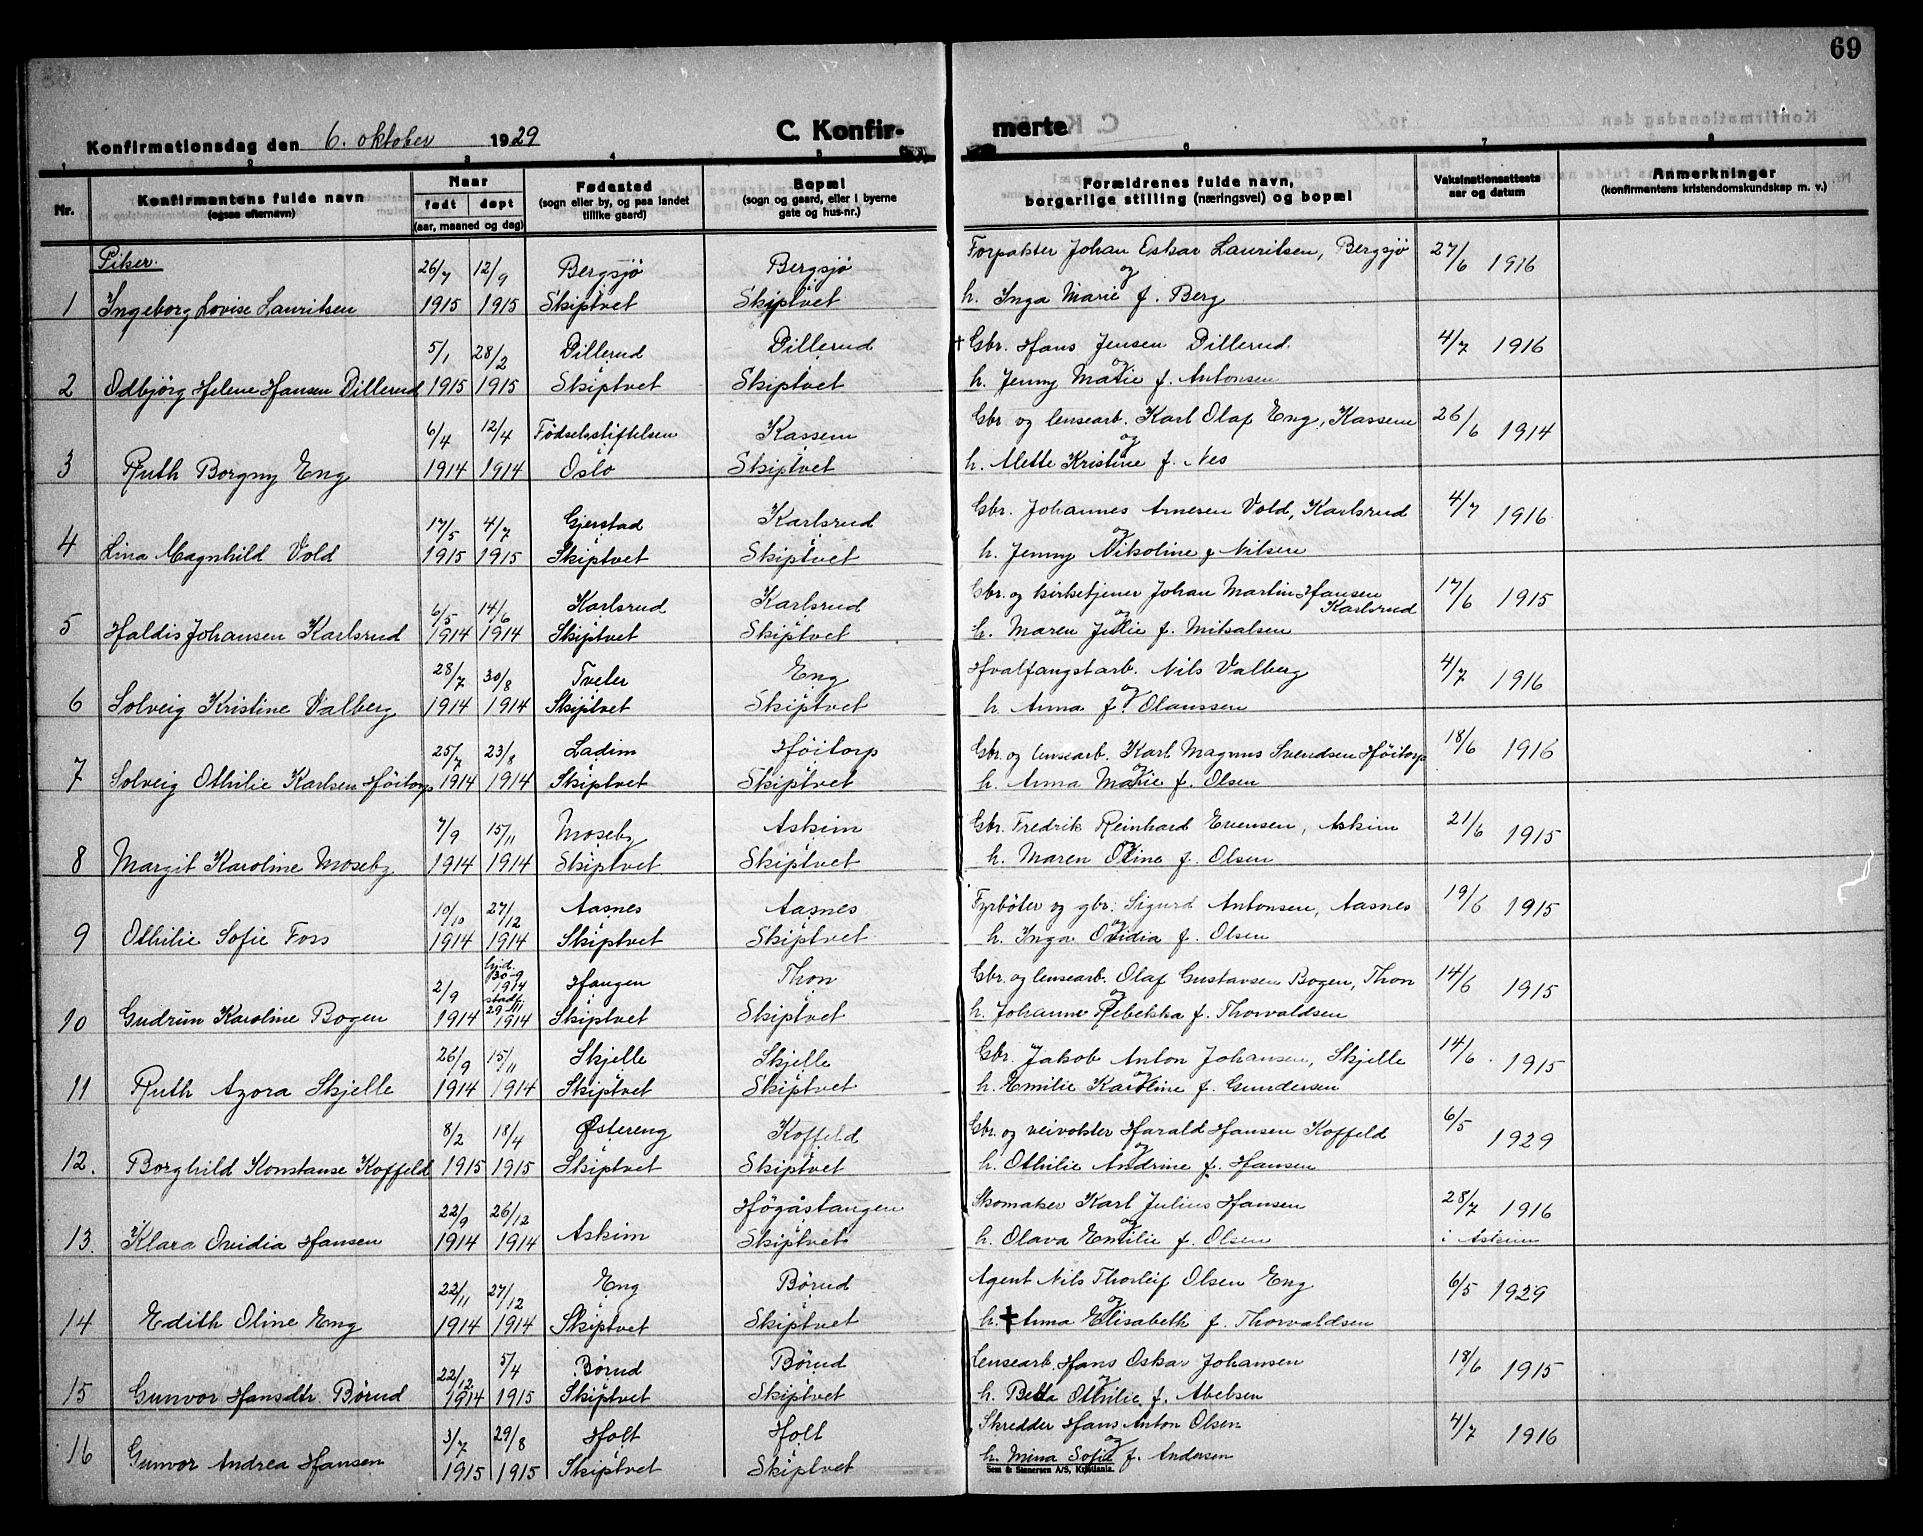 69
Konfirmationsdag den 6. oktober 1929
C. Konfir- merte
1 2 3 4 5 6 7 8
Nr.
Konfirmantens fulde navn
(ogsaa efternavn)
Naar
født døpt
(aar, maaned og dag)
Fødested
(sogn eller by, og paa landet
tillike gaard)
Bopæl
(sogn og gaard, eller i byerne
gate og hus-nr.)
Forældrenes fulde navn,
borgerlige stilling (næringsvei) og bopæl
Vaksinationsattests
aar og datum
Anmerkninger
(konfirmantens kristendomskundskap m. v.)
Piker.
26/7 12/9 Bergsjö Bergsjö Forpakter Johan Oskar Lauritsen, Bergsjö 27/6 1916
og
1 Ingeborg Lovise Lauritsen 1915 1915 Skiptvet Skiptvet h. Inga Marie f. Berg
5/1 28/2 Dillerud Dillerud + Gbr. Hans Jensen Dillerud. 4/7 1916
og
2 Odbjörg Helene Hansen Dillerud 1915 1915 Skiptvet Skiptvet h. Jenny Marie f. Antonsen
6/4 12/4 Födselsstiftelsen Kassem Gbr. og lensearb. Karl Olaf Eng, Kassem 26/6 1914
og
3 Ruth Borgny Eng 1914 1914 Oslo Skiptvet h. Alette Kristine f. Nes
17/5 4/7 Gjerstad Karlsrud Gbr. Johannes Arnesen Vold, Karlsrud 4/7 1916
og
4 Lina Magnhild Vold 1915 1915 Skiptvet Skiptvet h. Jenny Nikoline f. Nilsen
6/5 14/6 Karlsrud Karlsrud Gbr. og kirketjener Johan Martin Hansen 17/6 1915
Karlsrud
og
5 Haldis Johansen Karlsrud 1914 1914 Skiptvet Skiptvet h. Maren Julie f. Mikalsen
28/7 30/8 Tveter Eng Hvalfangstarb. Nils Valberg 4/7 1916
og
6 Solveig Kristine Valberg 1914 1914 Skiptvet Skiptvet h. Anna f. Olaussen
25/7 23/8 Ladim Höitorp Gbr. og lensearb. Karl Magnus Svendsen Höitorp 18/6 1916
og
7 Solveig Othilie Karlsen Höitorp 1914 1914 Skiptvet Skiptvet h. Anna Marie f. Olsen
7/9 15/11 Moseby Askim Gbr. Fredrik Reinhard Evensen, Askim 21/6 1915
og
8 Margit Karoline Moseby 1914 1914 Skiptvet Skiptvet h. Maren Oline f. Olsen
10/10 27/12 Aasnes Aasnes Fyrböter og gbr. Sigurd Antonsen, Aasnes 19/6 1915
og
9 Othilie Sofie Foss 1914 1914 Skiptvet Skiptvet h. Inga Ovidia f. Olsen
2/9 hjd. 30-9 1914 Haugen Thon Gbr. og lensearb. Olaf Gustavsen Bogen, Thon 14/6 1915
og
10 Gudrun Karoline Bogen 1914 stadf. 29/11 1914 Skiptvet Skiptvet h. Johanne Rebekka f. Thorvaldsen
26/9 15/11 Skjelle Skjelle Gbr. Jakob Anton Johansen, Skjelle 14/6 1915
og
11 Ruth Azora Skjelle 1914 1914 Skiptvet Skiptvet h. Emilie Karoline f. Gundersen
8/2 18/4 Østereng Koffeld Gbr. og veivokter Harald Hansen Koffeld 6/5 1929
og
12. Borghild Konstanse Koffeld 1915 1915 Skiptvet Skiptvet h. Othilie Andrine f. Hansen
22/9 26/12 Askim Högåstangen Skomaker Karl Julius Hansen 28/7 1916
og
13. Klara Ovidia Hansen 1914 1914 Skiptvet h. Olava Emilie f. Olsen i Askim
22/11 27/12 Eng Börud Agent Nils Thorleif Olsen Eng 6/5 1929
og
14 Edith Oline Eng 1914 1914 Skiptvet Skiptvet h. + Anna Elisabeth f. Thorvaldsen
22/12 5/4 Börud Börud Lensearb. Hans Oskar Johansen 18/6 1915
og
15 Gunvor Hansdtr. Börud 1914 1915 Skiptvet Skiptvet h. Betta Othilie f. Abelsen
3/7 29/8 Holt Holt Skredder Hans Anton Olsen 4/7 1916
og
16 Gunvor Andrea Hansen 1915 1915 Skiptvet Skiptvet h. Mina Sofie f. Andersen
Sem & Stenersen A/S, Kristiania.